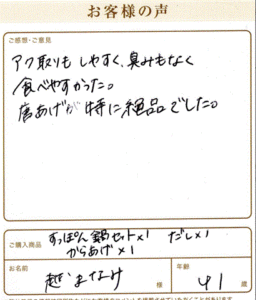 お客様の声
ご感想・ご意見
アク取りもしやすく、臭みもなく
食べやすかった。
唐あげが特に絶品でした。
ご購入商品
すっぽん鍋セット×1 だし×1
からあげ×1
お名前
越 まなみ 様
年齢
41 歳